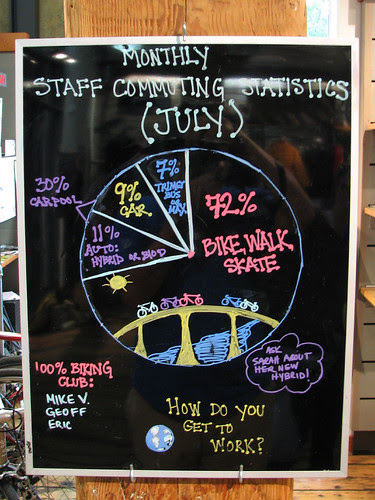 MONTHLY
STAFF COMMUTING STATISTICS
(JULY)
30%
CARPOOL
9%
CAR
7%
TRIMET
BUS OR
MAX
72%
BIKE, WALK,
SKATE
11%
AUTO:
HYBRID OR BIOD
100% BIKING
CLUB:
MIKE V.
GEOFF
ERIC
ASK
SARAH ABOUT
HER NEW
HYBRID!
HOW DO YOU
GET TO
WORK?